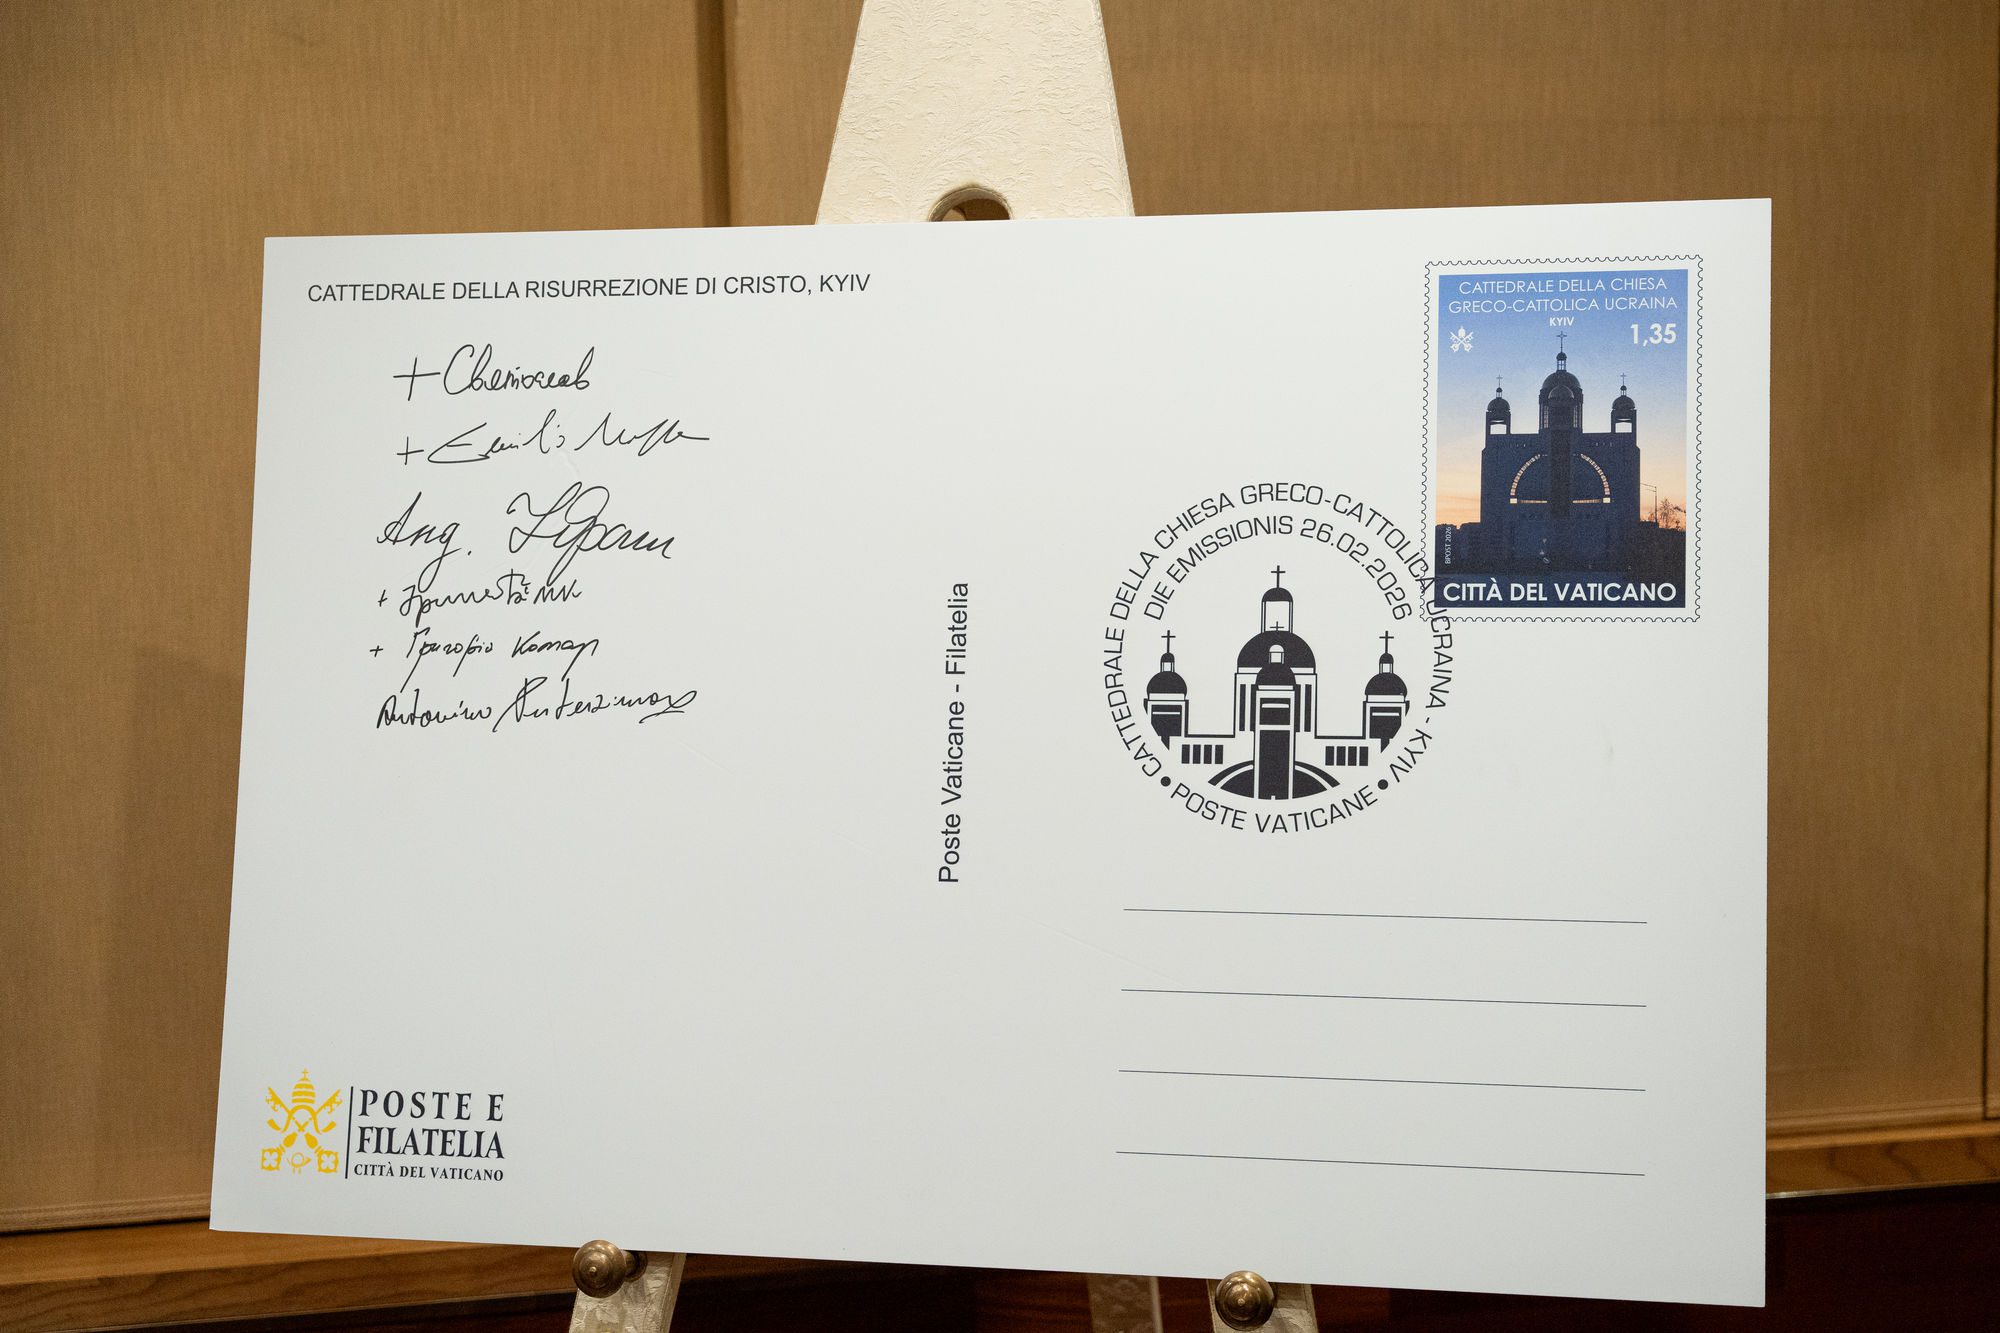 CATTEDRALE DELLA RISURREZIONE DI CRISTO, KYIV
+ Святослав
+ Emilio
Ang.
+ Григорій Комар
Antonino
Poste Vaticane - Filatelia
CATTEDRALE DELLA CHIESA
GRECO-CATTOLICA UCRAINA
KYIV
1,35
BPOST 2026
CITTÀ DEL VATICANO
CATTEDRALE DELLA CHIESA GRECO-CATTOLICA UCRAINA - KYIV
DIE EMISSIONIS 26.02.2026
• POSTE VATICANE •
POSTE E
FILATELIA
CITTÀ DEL VATICANO